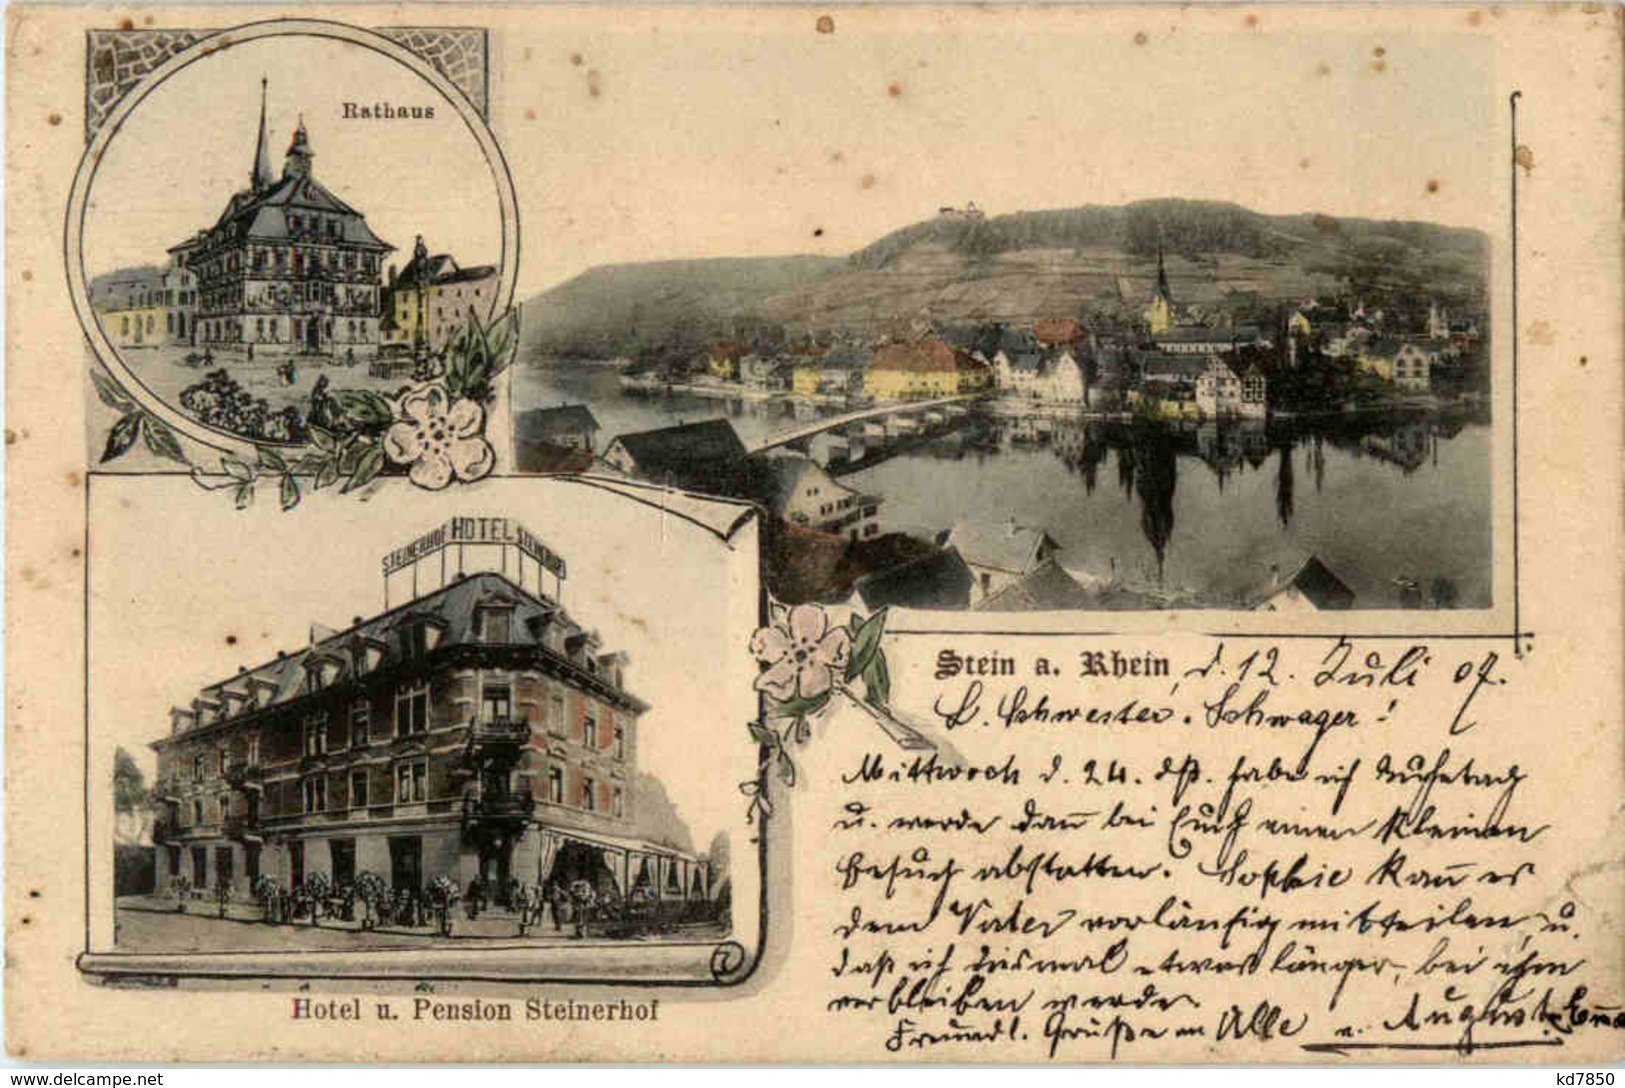 Rathaus
STEINERHOF HOTEL STEINERHOF
Hotel u. Pension Steinerhof
Stein a. Rhein, d. 12. Juli 07.
L. Schwester u. Schwager!
Mittwoch d. 24. ds. habe ich Ruhetag
u. werde dann bei Euch einen kleinen
Besuch abstatten. Sophie kann es
dem Vater vorläufig mitteilen, u.
daß ich diesmal etwas länger bei ihm
verbleiben werde.
Freundl. Grüße an Alle v. August
kd7850